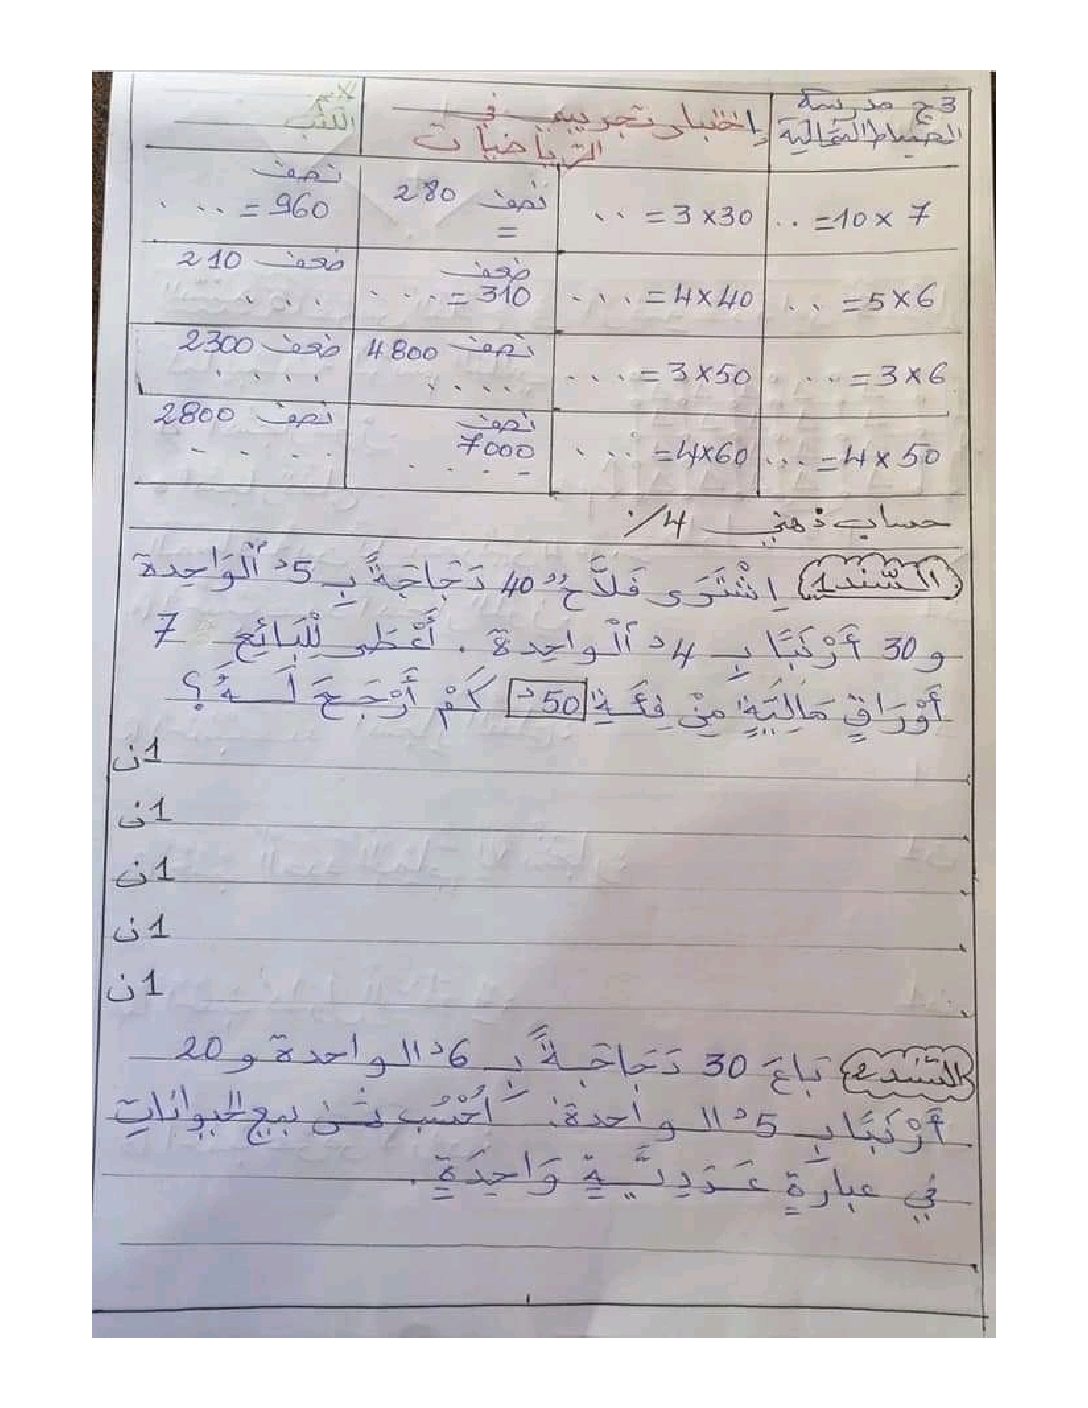 3ج مدرسة
إختبار تجريبي في
الضباط المقالية
الرياضيات
7 × 10 = ..
30 × 3 = ..
نصف 280
=
نصف
960 = ....
6 × 5 = ..
40 × 4 = ...
ضعف
310 = ....
ضعف 210
...
6 × 3 = ..
50 × 3 = ...
نصف 4800
....
ضعف 2300
....
50 × 4 = ...
60 × 4 = ...
نصف
7000
....
نصف 2800
....
حساب ذهني 4/.
السّند 1 اِشْتَرَى فَلاَّحٌ 40 دَجَاجَةً بِـ 5د اَلْوَاحِدة
و 30 أَرْنَبًا بِـ 4د اَلْواحِدة . أَعْطَى لِلْبَائِعِ 7
أَوْرَاقٍ مَالِيَّةٍ مِنْ فِئَةِ 50د كَمْ أَرْجَعَ لَـهُ؟
1ن
1ن
1ن
1ن
1ن
السّند 2 بَاعَ 30 دَجَاجَـةً بِـ 6د الواحدة و 20
أَرْنَبًا بِـ 5د الـواحدة. أُحْسُب ثمن بيع الحيوانات
في عبارةٍ عَدَدِيَّـةٍ وَاحِدَةٍ .